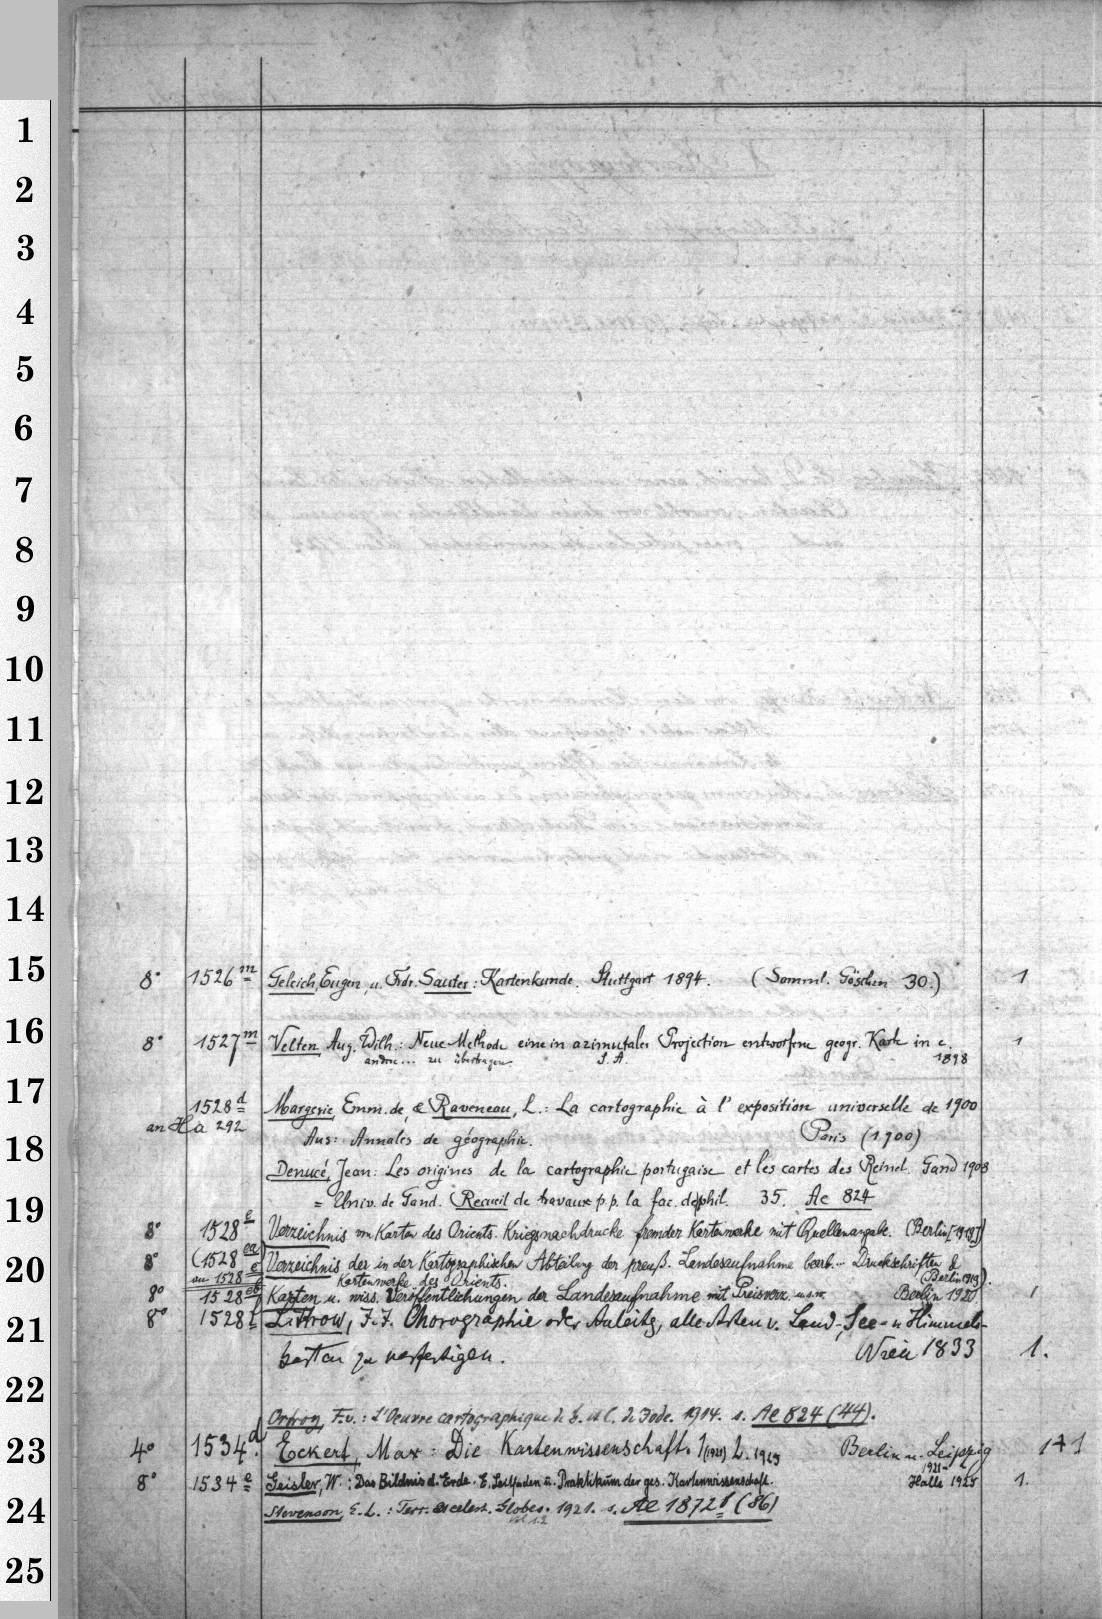 1
2
3
4
5
6
7
8
9
10
11
12
13
14
15
16
17
18
19
20
21
22
23
24
25
8° 1526 m Gelcich, Eugen, u. Frdr. Sauter: Kartenkunde. Stuttgart 1894. (Samml. Göschen 30.) 1
8° 1527 m Velten, Aug. Wilh.: Neue Methode eine in azimutaler Projection entworfene geogr. Karte in e. 1
andere... zu übertragen. S.A. 1898
1528 d Margerie, Emm. de, & Raveneau, L.: La cartographie à l'exposition universelle de 1900
an Ha 292 Aus: Annales de géographie. (Paris (1900)
Denucé, Jean: Les origines de la cartographie portugaise et les cartes des Reinel. Gand 1908
= Univ. de Gand. Recueil de travaux p.p. la fac. de phil. 35. Ae 824
8° 1528 e Verzeichnis von Karten des Orients. Kriegsnachdrucke fremder Kartenwerke mit Quellenangabe. (Berlin [1918])
8° (1528 ea) Verzeichnis der in der Kartographischen Abteilung der preuß. Landesaufnahme bearb... Druckschriften &
an 1528 e Kartenwerke des Orients. (Berlin 1918).
8° 1528 eb Karten u. wiss. Veröffentlichungen der Landesaufnahme mit Preisverz. usw. Berlin 1920 1
8° 1528 f Littrow, J.J. Chorographie oder Anleitg, alle Arten v. Land-, See- u Himmels-
karten zu verfertigen. Wien 1833 1.
Ortroy, F.v.: L'Oeuvre cartographique de G. et C. de Jode. 1914. s. Ae 824 (44).
4° 1534 d. Eckert, Max: Die Kartenwissenschaft. 1 (1921) 2. 1925 Berlin u. Leipzig 1+1
1921-
8° 1534 e Geisler, W.: Das Bildnis d. Erde. E. Leitfaden u. Praktikum der ges. Kartenwissenschaft. Halle 1925 1.
Stevenson, E.L.: Terr. & celest. Globes. 1921. s. Ae 1872 f (86)
Vol. 1.2